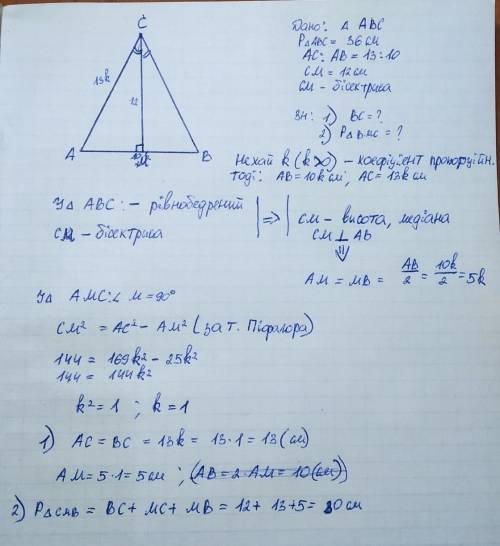 C
13k
12
A
M
B
Дано: Δ ABC
PΔABC = 36 см
AC: AB = 13:10
CM = 12 см
CM - бісектриса
Зн: 1) BC = ?
2) PΔBMC = ?
Нехай k (k>0) - коефіцієнт пропорційн.
тоді: AB = 10k см; AC = 13k см
У Δ ABC: - рівнобедрений
CM - бісектриса
=>
CM - висота, медіана
CM ⊥ AB
AM = MB = AB/2 = 10k/2 = 5k
У Δ AMC: ∠ M = 90°
CM² = AC² - AM² (за т. Піфагора)
144 = 169k² - 25k²
144 = 144k²
k² = 1 ; k = 1
1) AC = BC = 13k = 13·1 = 13 (см)
AM = 5·1 = 5 см ; (AB = 2·AM = 10 (см))
2) PΔCMB = BC + MC + MB = 12 + 13 + 5 = 30 см